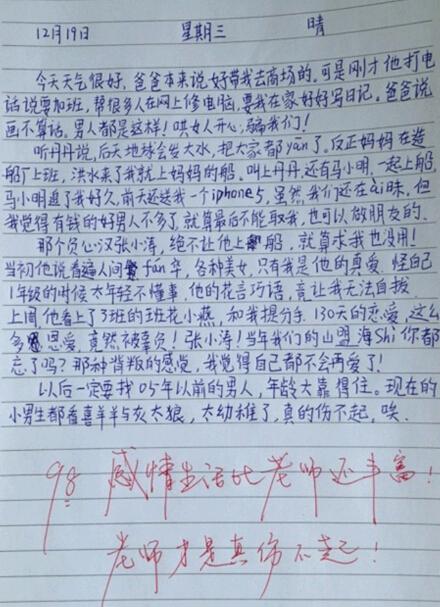 12月19日 星期三 晴
今天天气很好，爸爸本来说好带我去商场的。可是刚才他打电
话说要加班，帮很多人在网上修电脑，要我在家好好写日记。爸爸说
画不算话。男人都是这样！哄女人开心，骗我们！
听丹丹说，后天地球会发大水，把大家都yān了。反正妈妈在造
船厂上班，洪水来了我就上妈妈的船，叫上丹丹，还有马小明，一起上船，
马小明追了我好久，前天还送我一个iphone5，虽然我们还在ài昧，但
我觉得有钱的好男人不多了，就算最后不能取我，也可以做朋友的。
那个负心汉张小涛，绝不让他上船，就算求我也没用！
当初他说看遍人间fán华，各种美女，只有我是他的真爱。怪自己
1年级的时候太年轻不懂事，他的花言巧语，竟让我无法自拔。
上周他看上了3班的班花小燕，和我提分手，130天的恋爱，这么
多恩爱，竟然被辜负！张小涛！当年我们的山盟海Shì你都
忘了吗？那种背叛的感觉，我觉得自己都不会再爱了！
以后一定要找05年以前的男人，年龄大靠得住。现在的
小男生都看喜羊羊与灰太狼，太幼稚了，真的伤不起，唉.
98 感情生活比老师还丰富！
老师才是真伤不起！